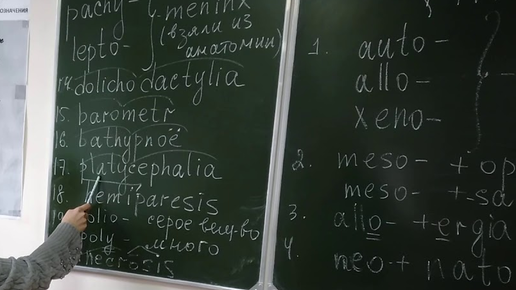 pachy-
lepto-
meninx
(взяли из
анатомии)
14. dolichodactylia
15. barometr
16. bathypnoë
17. platycephalia
18. hemiparesis
19. polio- серое вещ-во
poly- много
necrosis
1. auto-
allo-
xeno-
2. meso- + op
meso- + sa
3. allo- + ergia
4. neo- + nato